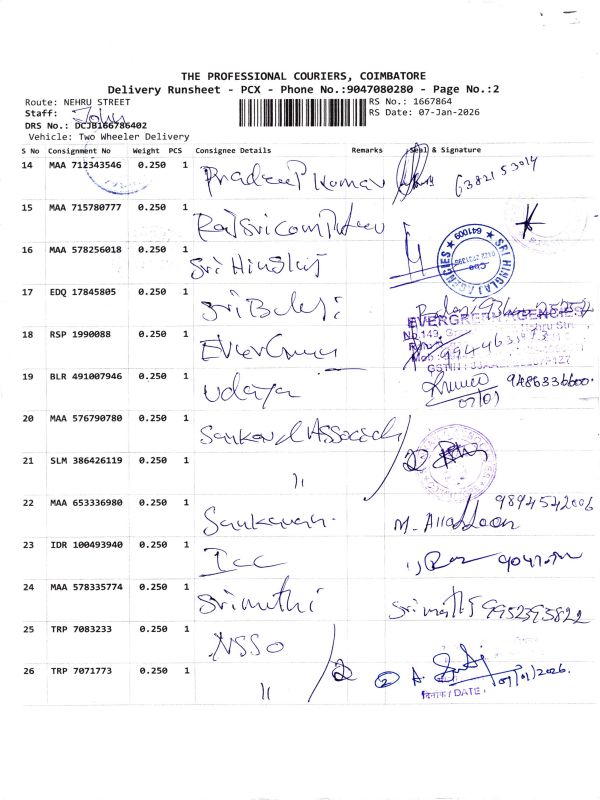 THE PROFESSIONAL COURIERS, COIMBATORE
Delivery Runsheet - PCX - Phone No.:9047080280 - Page No.:2
Route: NEHRU STREET
RS No.: 1667864
Staff: John
RS Date: 07-Jan-2026
DRS No.: DCJB166786402
Vehicle: Two Wheeler Delivery
S No Consignment No Weight PCS Consignee Details Remarks Seal & Signature
14 MAA 712343546 0.250 1 Pradeep Kumar
15 MAA 715780777 0.250 1
16 MAA 578256018 0.250 1 Sri Hinglaj
SRI HINGLAJ AGENCIES ★ 641009 ★
17 EDQ 17845805 0.250 1 Sri Balaji
EVERGREEN AGENCIES
18 RSP 1990088 0.250 1 Evergreen
19 BLR 491007946 0.250 1 Udaya 9486336600.
07/01
20 MAA 576790780 0.250 1
21 SLM 386426119 0.250 1 "
22 MAA 653336980 0.250 1 9894542006
23 IDR 100493940 0.250 1 Icc
24 MAA 578335774 0.250 1 Srimathi Srimathi 9952395822
25 TRP 7083233 0.250 1 NSSO
26 TRP 7071773 0.250 1 " 2 07/01/2026.
दिनांक / DATE :